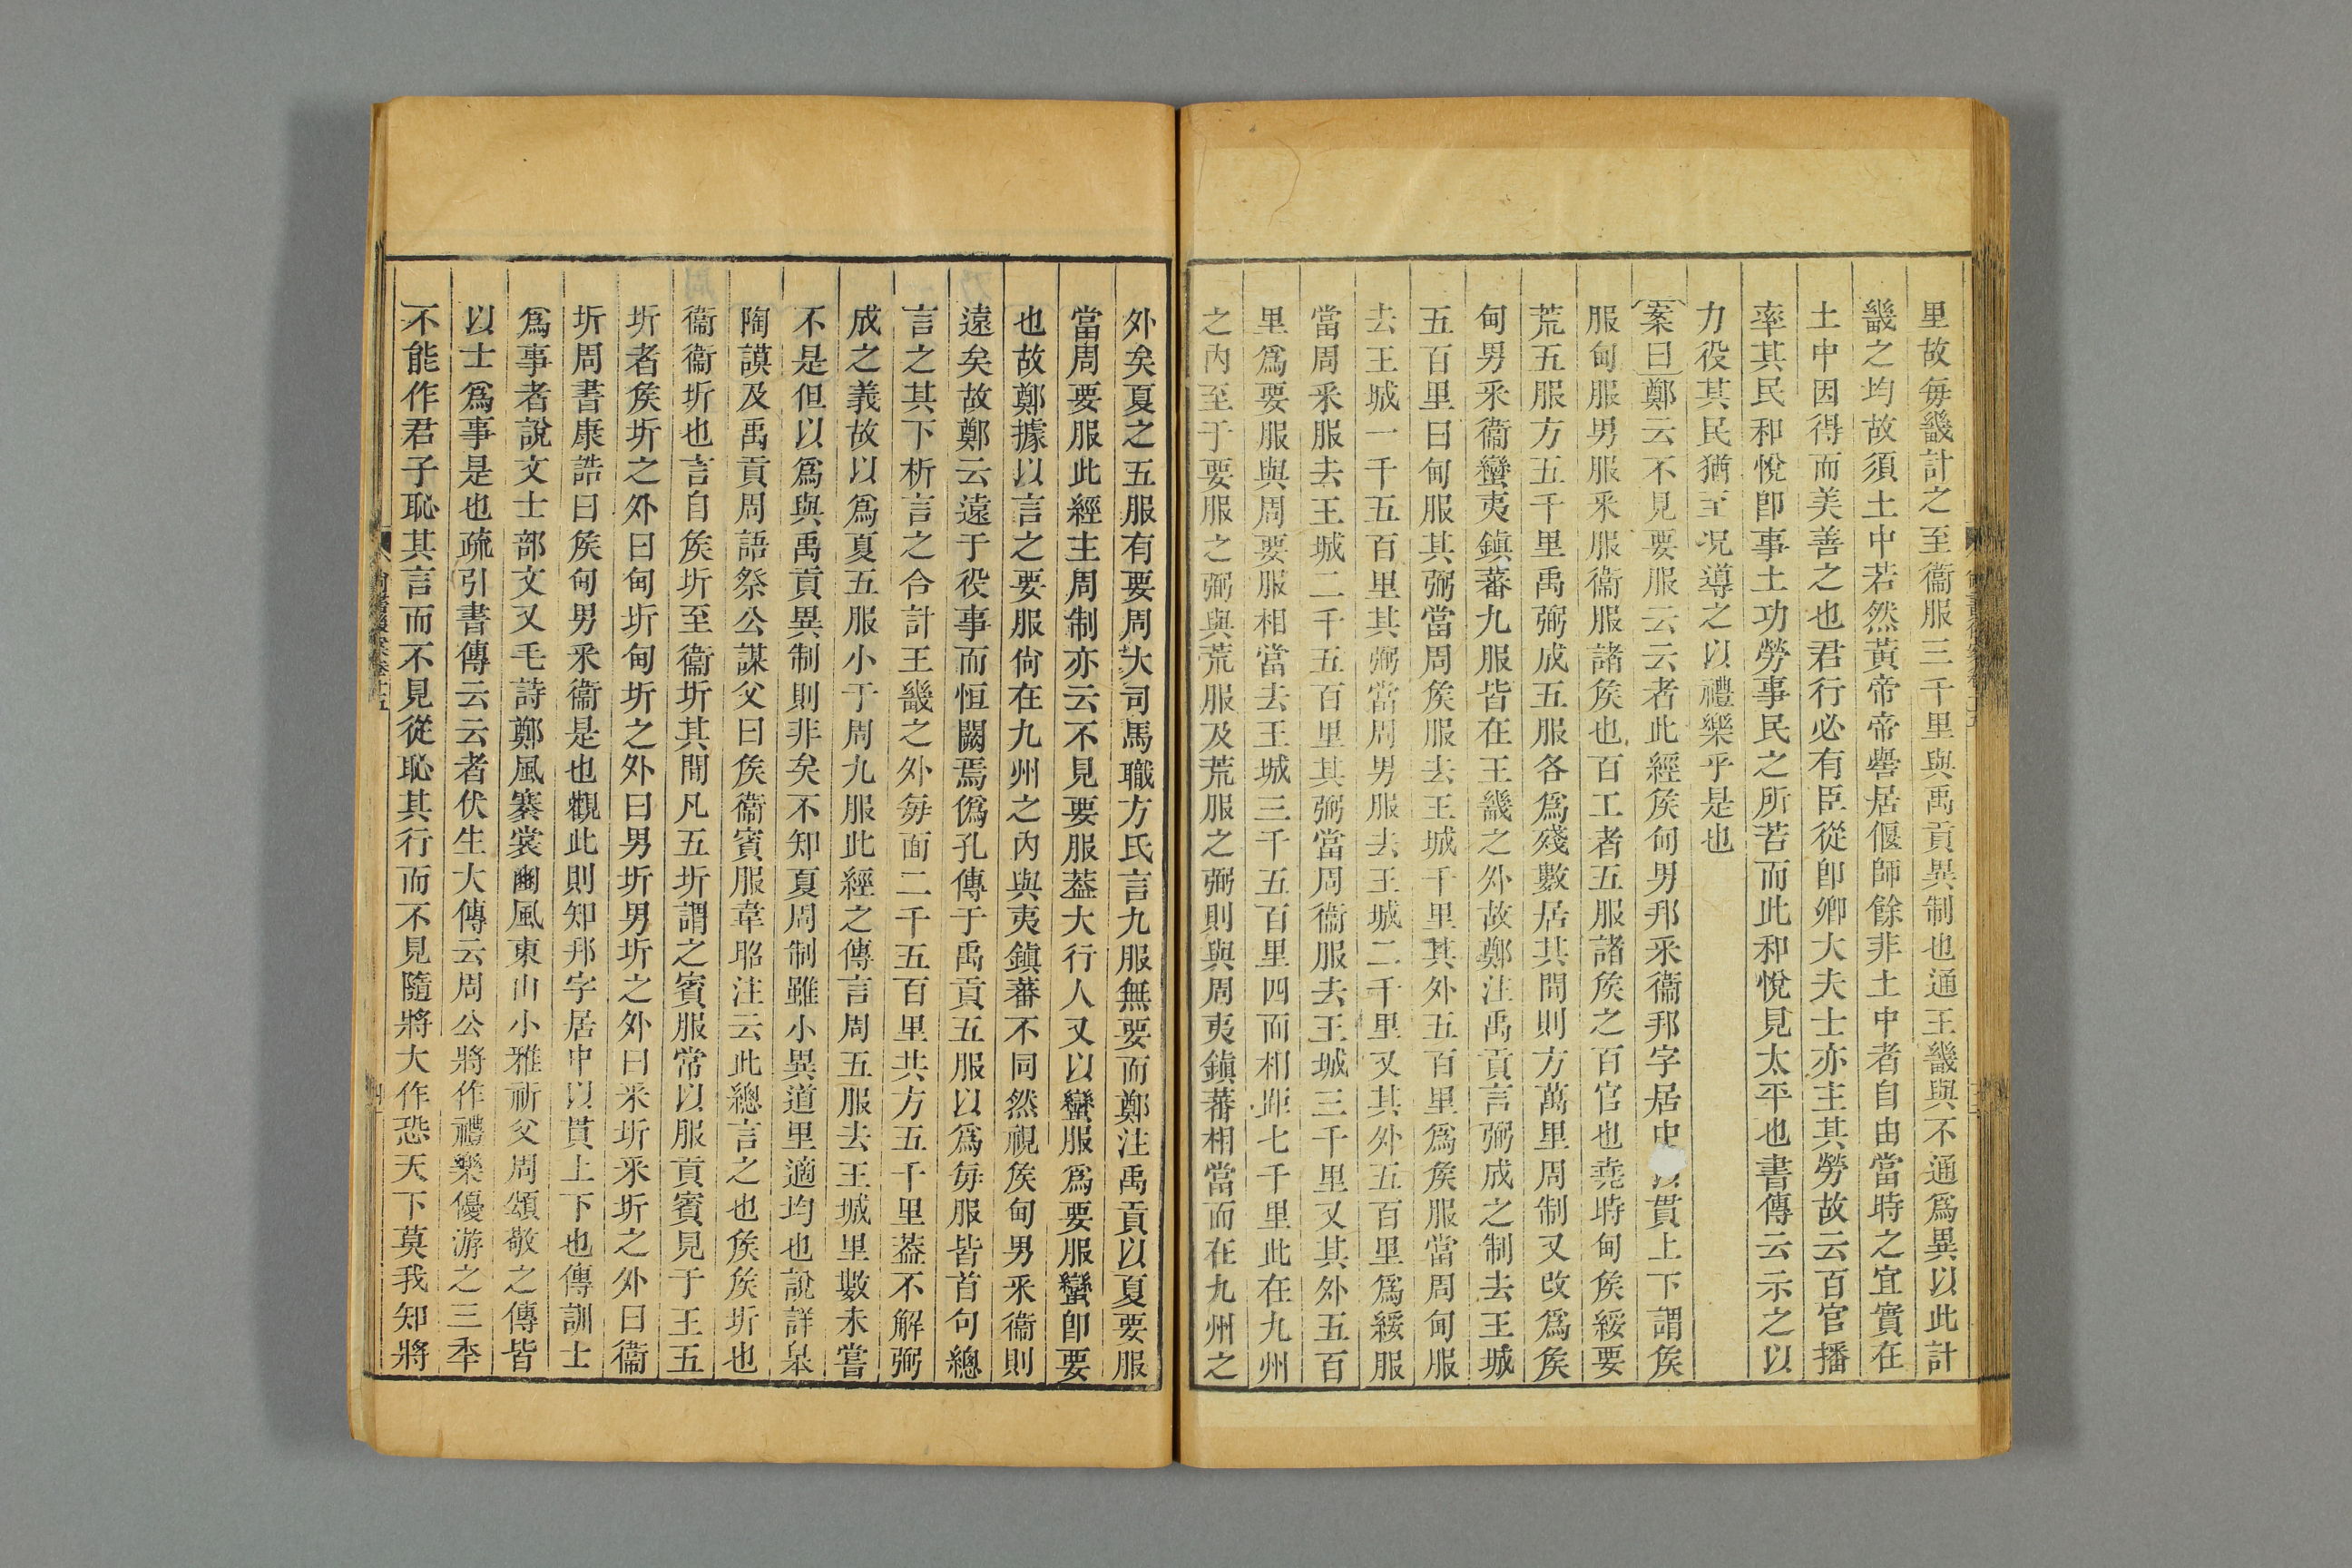 里故每畿計之至衞服三千里與禹貢異制也通王畿與不通爲異以此計
畿之均故須土中若然黃帝帝嚳居偃師餘非土中者自由當時之宜實在
土中因得而美善之也君行必有臣從卽卿大夫士亦主其勞故云百官播
率其民和悅卽事土功勞事民之所苦而此和悅見太平也書傳云示之以
力役其民猶至况導之以禮樂乎是也
案曰鄭云不見要服云云者此經矦甸男邦采衞邦字居中以貫上下謂矦
服甸服男服采服衞服諸矦也百工者五服諸矦之百官也堯時甸矦綏要
荒五服方五千里禹弼成五服各爲殘數居其間則方萬里周制又改爲矦
甸男采衞蠻夷鎭蕃九服皆在王畿之外故鄭注禹貢言弼成之制去王城
五百里曰甸服其弼當周矦服去王城千里其外五百里爲矦服當周甸服
去王城一千五百里其弼當周男服去王城二千里又其外五百里爲綏服
當周采服去王城二千五百里其弼當周衞服去王城三千里又其外五百
里爲要服與周要服相當去王城三千五百里四面相距七千里此在九州
之內至于要服之弼與荒服及荒服之弼則與周夷鎭蕃相當而在九州之
外矣夏之五服有要周大司馬職方氏言九服無要而鄭注禹貢以夏要服
當周要服此經主周制亦云不見要服葢大行人又以蠻服爲要服蠻卽要
也故鄭據以言之要服尙在九州之內與夷鎭蕃不同然視矦甸男采衞則
遠矣故鄭云遠于役事而恒闕焉僞孔傳于禹貢五服以爲每服皆首句總
言之其下析言之合計王畿之外每面二千五百里共方五千里葢不解弼
成之義故以爲夏五服小于周九服此經之傳言周五服去王城里數未嘗
不是但以爲與禹貢異制則非矣不知夏周制雖小異道里適均也說詳皐
陶謨及禹貢周語祭公謀父曰矦衞賓服韋昭注云此總言之也矦矦圻也
衞衞圻也言自矦圻至衞圻其間凡五圻謂之賓服常以服貢賓見于王五
圻者矦圻之外曰甸圻甸圻之外曰男圻男圻之外曰采圻采圻之外曰衞
圻周書康誥曰矦甸男采衞是也觀此則知邦字居中以貫上下也傳訓士
爲事者說文士部文又毛詩鄭風褰裳豳風東山小雅祈父周頌敬之傳皆
以士爲事是也疏引書傳云云者伏生大傳云周公將作禮樂優游之三秊
不能作君子恥其言而不見從恥其行而不見隨將大作恐天下莫我知將